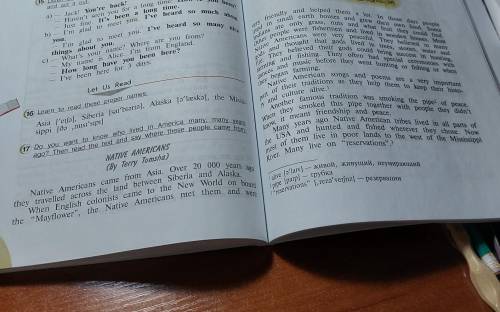 and act it out.
a) — Jack! You're back!
— Haven't seen you for a long time. How
— Fine! It's been a long time!
b) — I'm glad to see you. I've heard so much about
you.
— I'm glad to meet you. I've heard so many nice
things about you.
c) — What's your name? Where are you from?
— My name is Alice. I'm from England.
— How long have you been here?
— I've been here for 3 days.
Let Us Read
16 Learn to read these proper names:
Asia ['eɪʃə], Siberia [saɪ'bɪərɪə], Alaska [ə'læskə], the Missis-
sippi
17 Do you want to know who lived in America many, many years
ago? Then read the text and say where these people came from.
NATIVE AMERICANS
(By Terry Tomsha)
Native Americans came from Asia. Over 20 000 years ago
they travelled across the land between Siberia and Alaska.
When English colonists came to the New World on board
the "Mayflower", the Native Americans met them and were
very friendly and helped them a lot. In those days people
lived in small earth houses and grew their own food. Some
people were fishermen and lived in wooden houses. Most
Native Americans were very peaceful. They believed in many
gods and thought that gods lived in trees, stones, water and
They believed their gods could bring success in hunting
and fishing. They often had special ceremonies with
dances and music before they went hunting or fishing or when
farming.
Native American songs and poems are a very important
part of their traditions as they help them to keep their history
and culture alive.
Another famous tradition was smoking the pipe of peace.
When they smoked this pipe together with people they didn't
know, it meant friendship and peace.
Many years ago Native American tribes lived in all parts of
the USA and hunted and fished wherever they chose. Now
most of them live in poor lands to the west of the Mississippi
River. Many live on "reservations".
alive [ə'laɪv] — живой, живущий, неумирающий
pipe [paɪp] — трубка
"reservations" [,rezə'veɪʃnz] — резервации